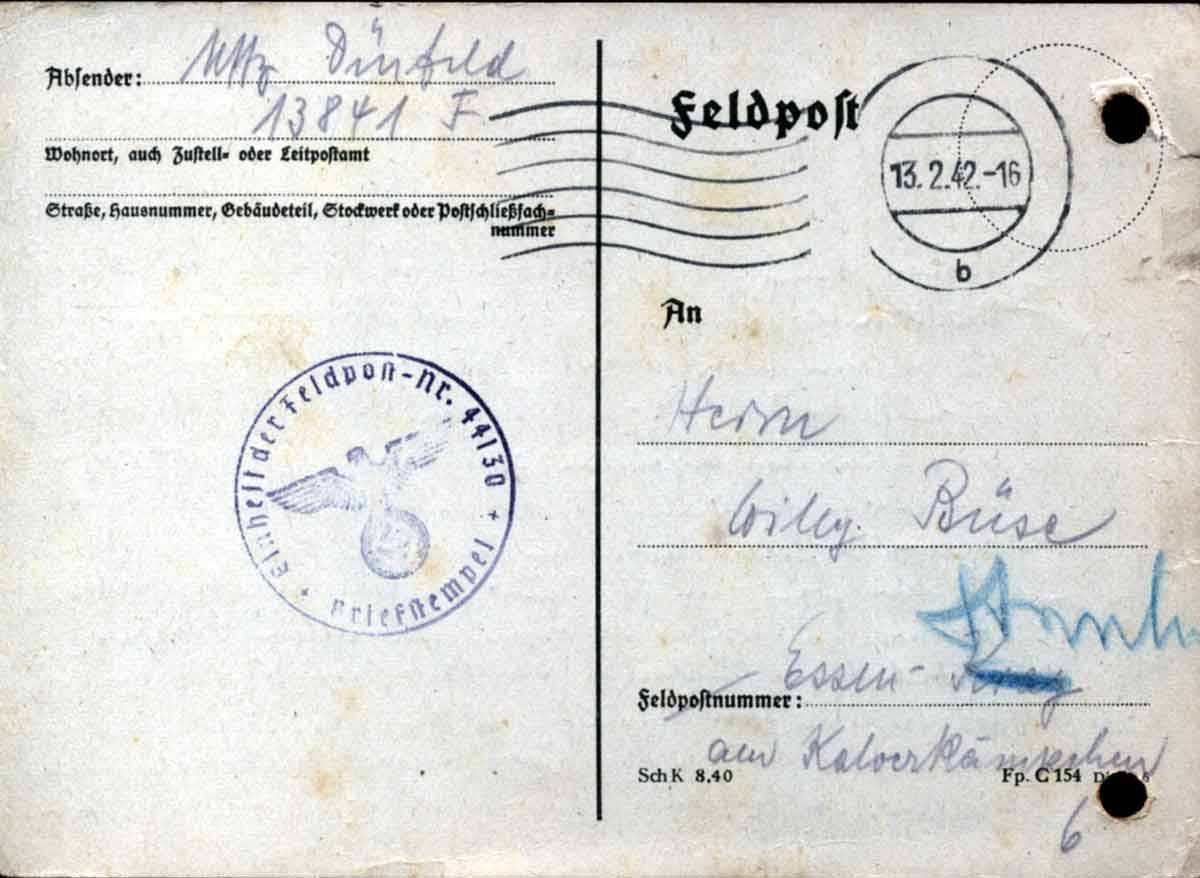 Absender: Uffz Dünfeld
13841 F
Wohnort, auch Zustell- oder Leitpostamt
Straße, Hausnummer, Gebäudeteil, Stockwerk oder Postschließfach-
nummer
Einheit der Feldpost-Nr. 44130 + Briefstempel +
Feldpost
13.2.42.-16
b
An
Herrn
Willy Büse
Essen-
Feldpostnummer:
am Kalverkämpchen
SchK 8.40
Fp. C 154
6